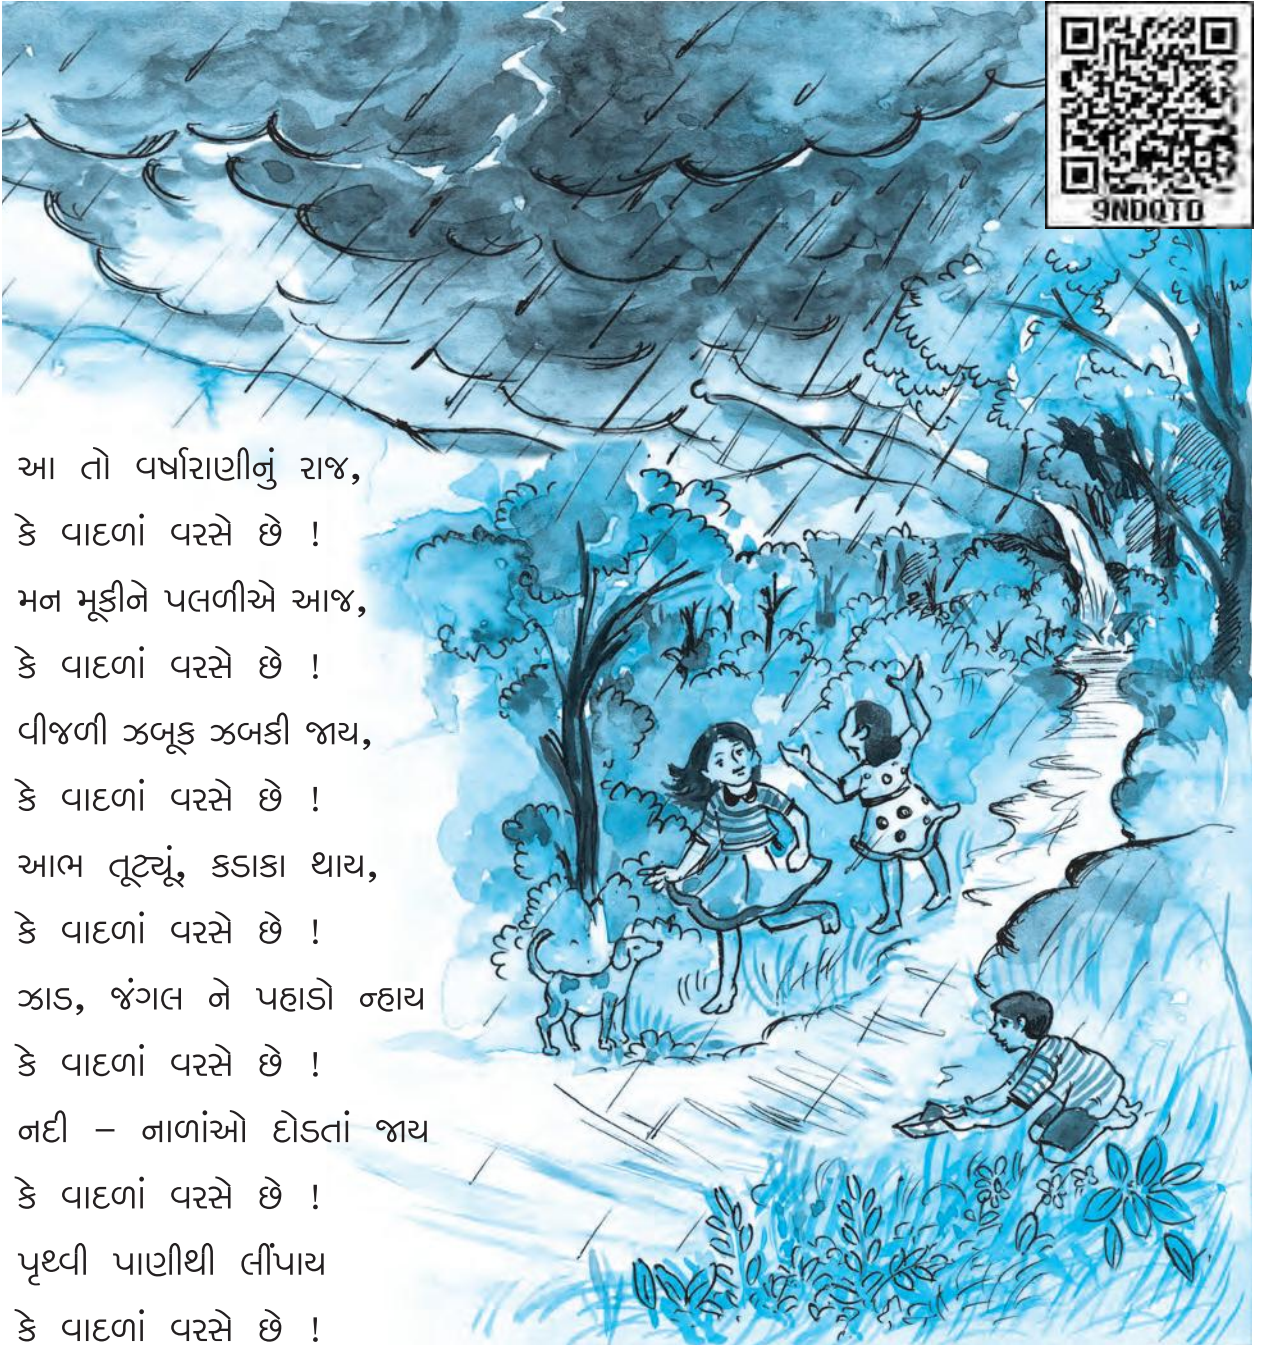 9NDQTD
આ તો વર્ષારાણીનું રાજ,
કે વાદળાં વરસે છે !
મન મૂકીને પલળીએ આજ,
કે વાદળાં વરસે છે !
વીજળી ઝબૂક ઝબકી જાય,
કે વાદળાં વરસે છે !
આભ તૂટ્યું, કડાકા થાય,
કે વાદળાં વરસે છે !
ઝાડ, જંગલ ને પહાડો ન્હાય
કે વાદળાં વરસે છે !
નદી – નાળાંઓ દોડતાં જાય
કે વાદળાં વરસે છે !
પૃથ્વી પાણીથી લીંપાય
કે વાદળાં વરસે છે !